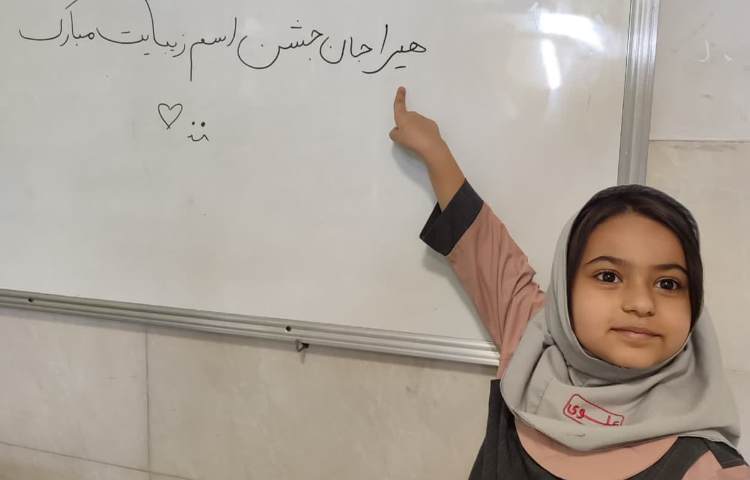 هیرا جان جشن اسم زیبایت مبارک
علوی